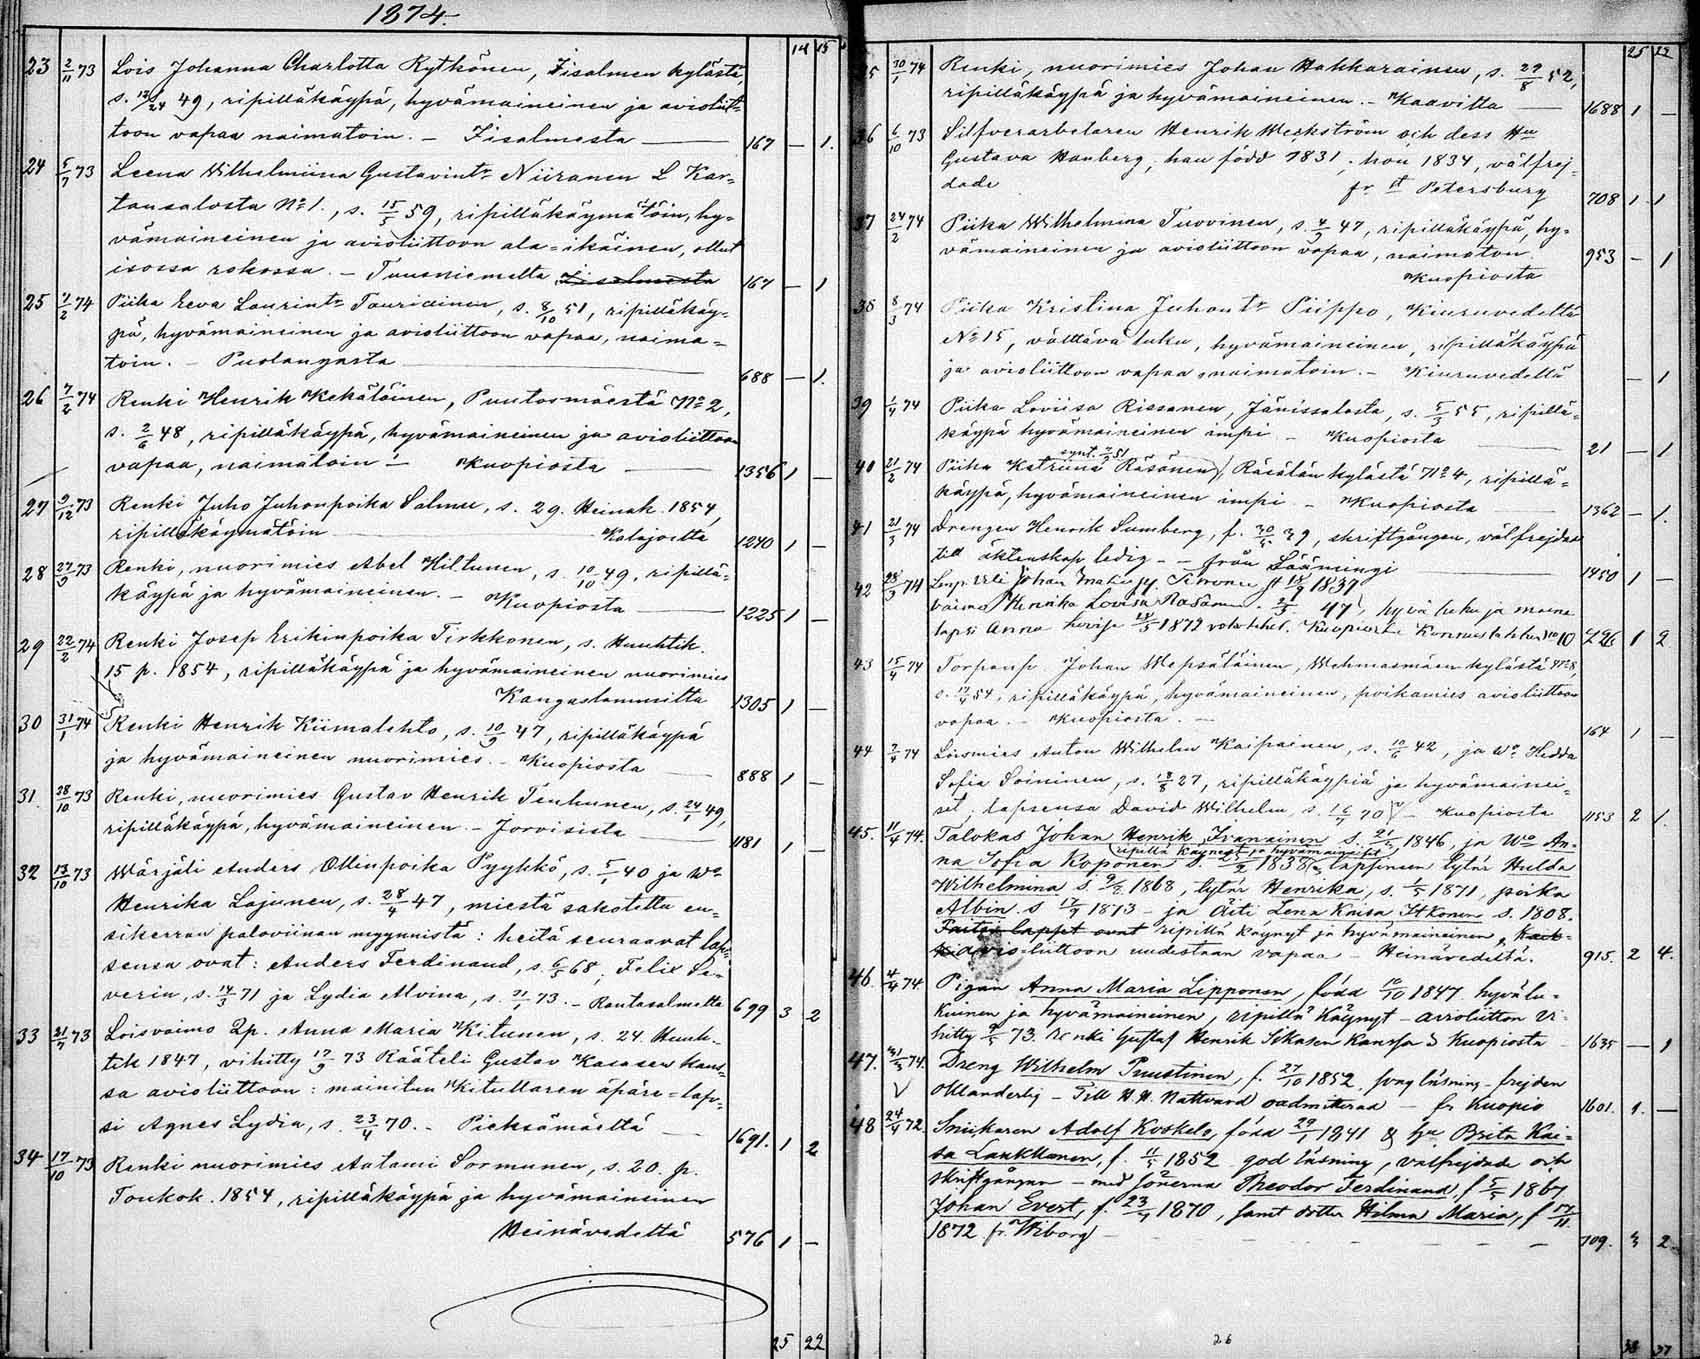 1874.
14 15
23 2/11 73 Lois Johanna Charlotta Rytkönen, Iisalmen kylästä,
49, ripilläkäypä, hyvämaineinen ja avioliit-
toon vapaa naimatoin. – Iisalmesta 167 – 1.
24 5/7 73 Leena Wilhelmiina Gustavintr Niiranen L Kar-
tansalosta No 1., s. 15/5 59, ripilläkäymätöin, hy-
vämaineinen ja avioliittoon ala-ikäinen, ollut
isossa rokossa. – Tuusniemeltä Iisalmesta 167 – 1
25 7/2 74 Piika Eeva Laurintr Tauriainen, s. 8/10 51, ripilläkäy-
pä, hyvämaineinen ja avioliittoon vapaa, naima-
toin. – Puolangasta 688 – 1.
26 7/2 74 Renki Henrik Kekäläinen, Puutosmäestä No 2,
s. 2/6 48, ripilläkäypä, hyvämaineinen ja avioliittoon
vapaa, naimatoin – Kuopiosta 1356 1 –
27 9/12 73 Renki Juho Juhonpoika Salmu, s. 29. Heinäk. 1854,
ripilläkäymätöin Kalajoelta 1240 1 –
28 27/9 73 Renki, nuorimies Abel Hiltunen, s. 10/10 49, ripillä-
käypä ja hyvämaineinen. – Kuopiosta 1225 1 –
29 22/2 74 Renki Josep Erikinpoika Tirkkonen, s. Huuhtik.
15 p. 1854, ripilläkäypä ja hyvämaineinen nuorimies
Kangaslammilta 1305 1 –
30 31/1 74 Renki Henrik Kiimalehto, s. 10/9 47, ripilläkäypä
ja hyvämaineinen nuorimies. – Kuopiosta 888 1 –
31. 28/10 73 Renki, nuorimies Gustav Henrik Tenhunen, s. 24/1 49,
ripilläkäypä, hyvämaineinen. – Jorvisista 1181 1 –
32 13/10 73 Wärjäli Anders Ollinpoika Pyykkö, s. 5/1 40 ja Wo
Henrika Lajunen, s. 28/4 47, miestä sakotettu en-
sikerran paloviinan myynnistä: heitä seuraavat lap-
sensa ovat: Anders Ferdinand, s. 6/5 68, Felix Se-
verin, s. 14/3 71 ja Lydia Alvina, s. 73. – Rantasalmelta 699 3 2
33 21/7 73 Loisvaimo Anna Maria Kitunen, s. 24. Huuh-
tik 1847, vihitty 17/9 73 Rääteli Gustav Kasasen kans-
sa avioliittoon: mainitun Kituttaren äpärä-lap-
si Agnes Lydia, s. 23/4 70. – Pieksämäeltä 1691. 1 2
34 17/10 73 Renki nuorimies Aatami Sormunen, s. 20. p.
Toukok. 1854, ripilläkäypä ja hyvämaineinen
Heinävedeltä 576 1 –
25 22
25 22
35 30/1 74 Renki, nuorimies Johan Hakkarainen, s. 29/8 52,
ripilläkäypä ja hyvämaineinen. – Kaavilta 1688 1 –
36 6/10 73 Silfverarbetaren Henrik Weckström och dess Hu
Gustava Hanberg, han född 1831, hon 1834, välfrej-
dade fr. St Petersburg 708 1 1
37 24/2 74 Piika Wilhelmina Tuovinen, s. 4/9 47, ripilläkäypä, hy-
vämaineinen ja avioliittoon vapaa, naimaton.
Kuopiosta 953 – 1
38 8/3 74 Piika Kristina Juhontr Piippo, Kiuruvedeltä
No 15, välttävä luku, hyvämaineinen, ripilläkäypä
ja avioliittoon vapaa naimatoin. – Kiuruvedeltä – 1
39 1/4 74 Piika Loviisa Rissanen, Jänissalosta, s. 5/3 55, ripillä-
käypä hyvämaineinen impi – Kuopiosta 21 – 1
synt. 51
40 21/2 74 Piika Katriina Räsänen, Räsälän kylästä No 4, ripillä-
käypä, hyvämaineinen impi. – Kuopiosta 1362 – 1.
41 21/3 74 Drengen Henrik Sumberg, f. 30/5 39, skriftgången, välfrejdad
till äktenskap ledig – från Säämingi 1450 1 –
42 28/3 74 Johan 1837
vaimo Henrika Lovisa Räsänen 47, hyvä luku ja maine
lapsi Anna 1872 Kuopiosta 726 1 2
43 15/4 74 Torpanp. Johan Wepsäläinen, Wehmasmäen kylästä No 8,
s. 17/4 54, ripilläkäypä, hyvämaineinen, poikamies avioliittoon
vapaa. – Kuopiosta. – 164 1 –
44 7/4 74 Loismies Anton Wilhelm Kaipainen, s. 10/6 42, ja Wo Hedda
Sofia Soininen, s. 18/5 27, ripilläkäypiä ja hyvämainei-
set, lapsensa David Wilhelm, s. 16/7 70 – Kuopiosta 1153 2 1.
45. 11/4 74. Talokas Johan Henrik Ivanainen s. 1846, ja Wo An-
ripillä käynyt ja hyvämaineiset
na Sofia Koponen s. 1838, lapsineen tytär Hulda
Wilhelmina s. 1868, tytär Henrika, s. 1/5 1871, poika
Albin. s 17/9 1873 – ja Äiti Lena Kaisa Itkonen s. 1808.
ripillä käynyt ja hyvämaineinen,
avioliittoon uudestaan vapaa – Heinävedeltä. 915. 2 4.
46. 4/4 74 Pigan Anna Maria Lipponen, född 10/10 1847 hyvälu-
kuinen ja hyvämaineinen, ripillä käynyt – avioliittoon vi-
hitty 73. Renki Gustaf Henrik Sikasen kanssa Kuopiosta 1635 – 1
47. 31/3 74. Dreng Wilhelm Puustinen, f. 27/10 1852, svag läsning – frejden
oklanderlig – Till H. H. Nattvard oadmitterad – fr Kuopio 1601. 1. –
48 24/4 72 Snickaren Adolf Koskelo, född 29/1 1841 & hu Brita Kai-
sa Laukkanen, f. 11/5 1852 god läsning, välfrejdade och
skriftgångna – med sönerna Theodor Ferdinand, f 5/5 1867
Johan Evert, f. 1870, samt dotter Hilma Maria, f 17/11
1872 fr. Wiborg – 709. 3 2.
26
38 37